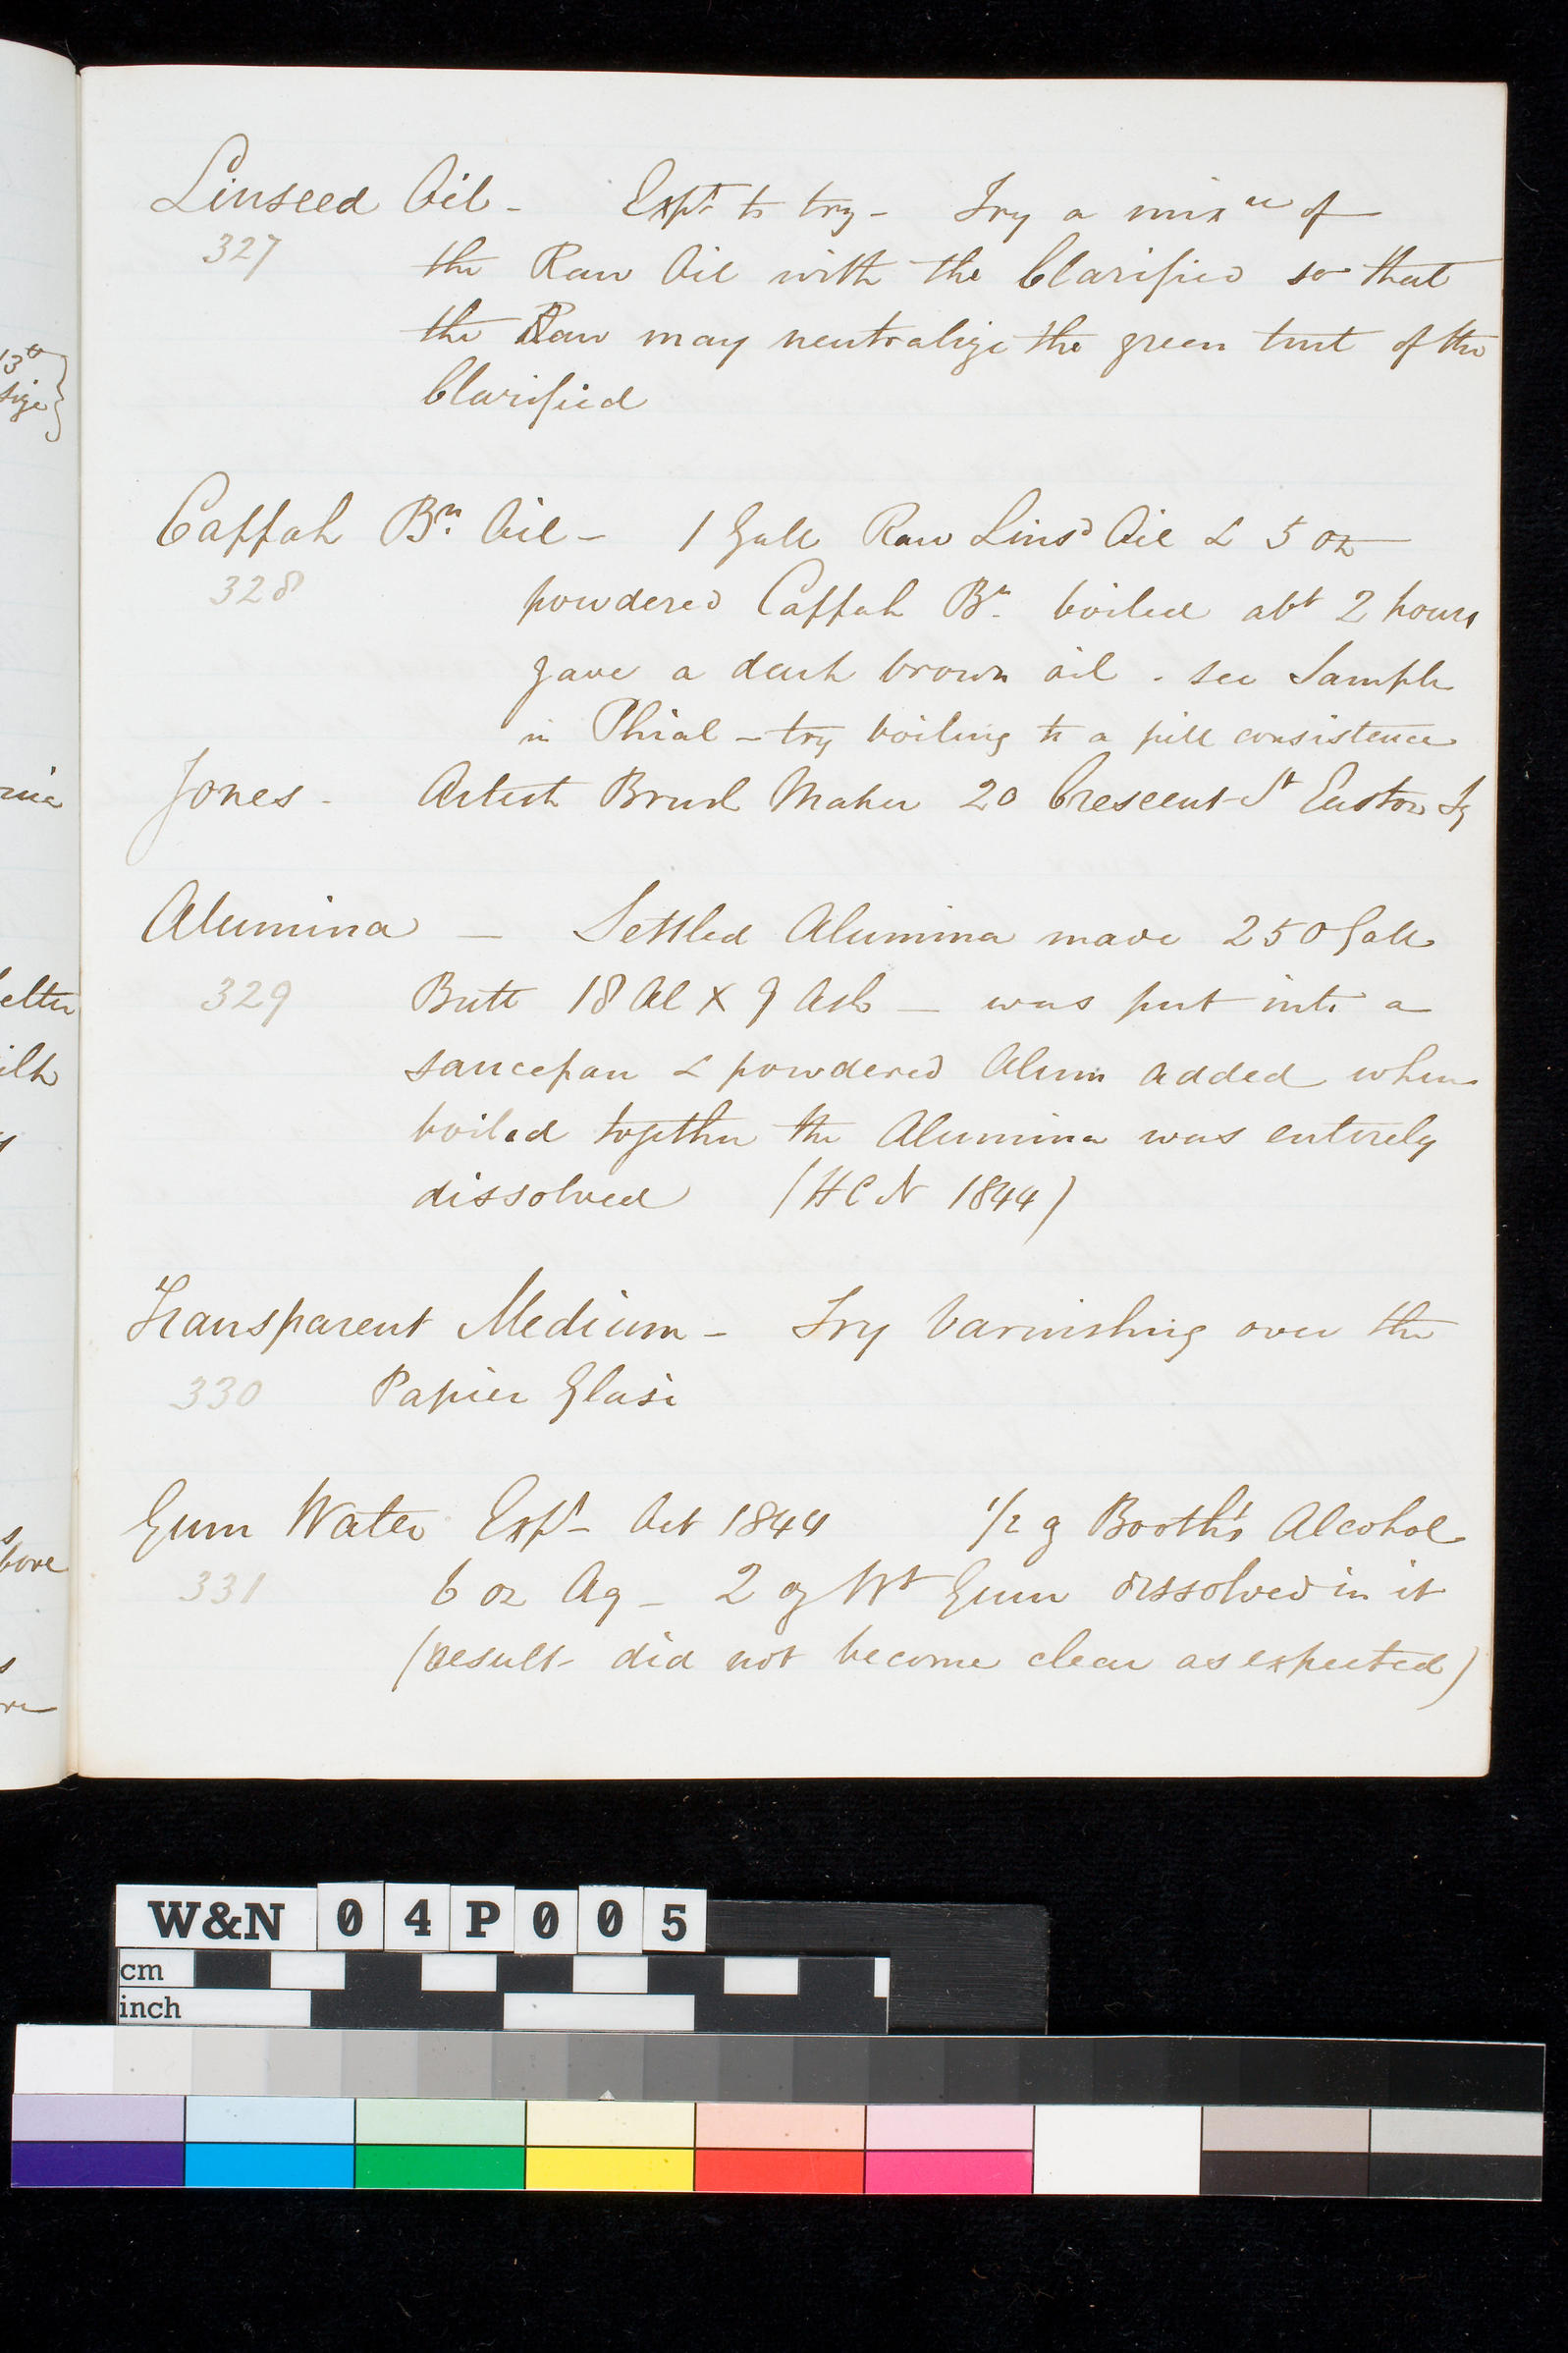 Linseed Oil - Expt to try - Try a mixre of
327
the Raw Oil with the Clarified so that
the Raw may neutralize the green tint of the
Clarified
Cappah Bn Oil - 1 Gall Raw Linsd Oil & 5 oz
328
powdered Cappah Bn boiled abt 2 hours
gave a dark brown oil - see Sample
in Phial - try boiling to a pill consistence
Jones - Artist Brush Maker 20 Crescent St Euston Sq
Alumina - Settled Alumina made 250 Gall
329
Butt 18 Al X 9 Ash - was put into a
saucepan & powdered Alum added when
boiled together the Alumina was entirely
dissolved (HCN 1844)
Transparent Medium - Try Varnishing over the
330
Papier Glasé
Gum Water Expt - Oct 1844 1/2 g Booth's Alcohol
331
6 oz Aq - 2 oz Wt Gum dissolved in it
(result - did not become clear as expected)
13th
size
above
W&N 04P005
cm
inch